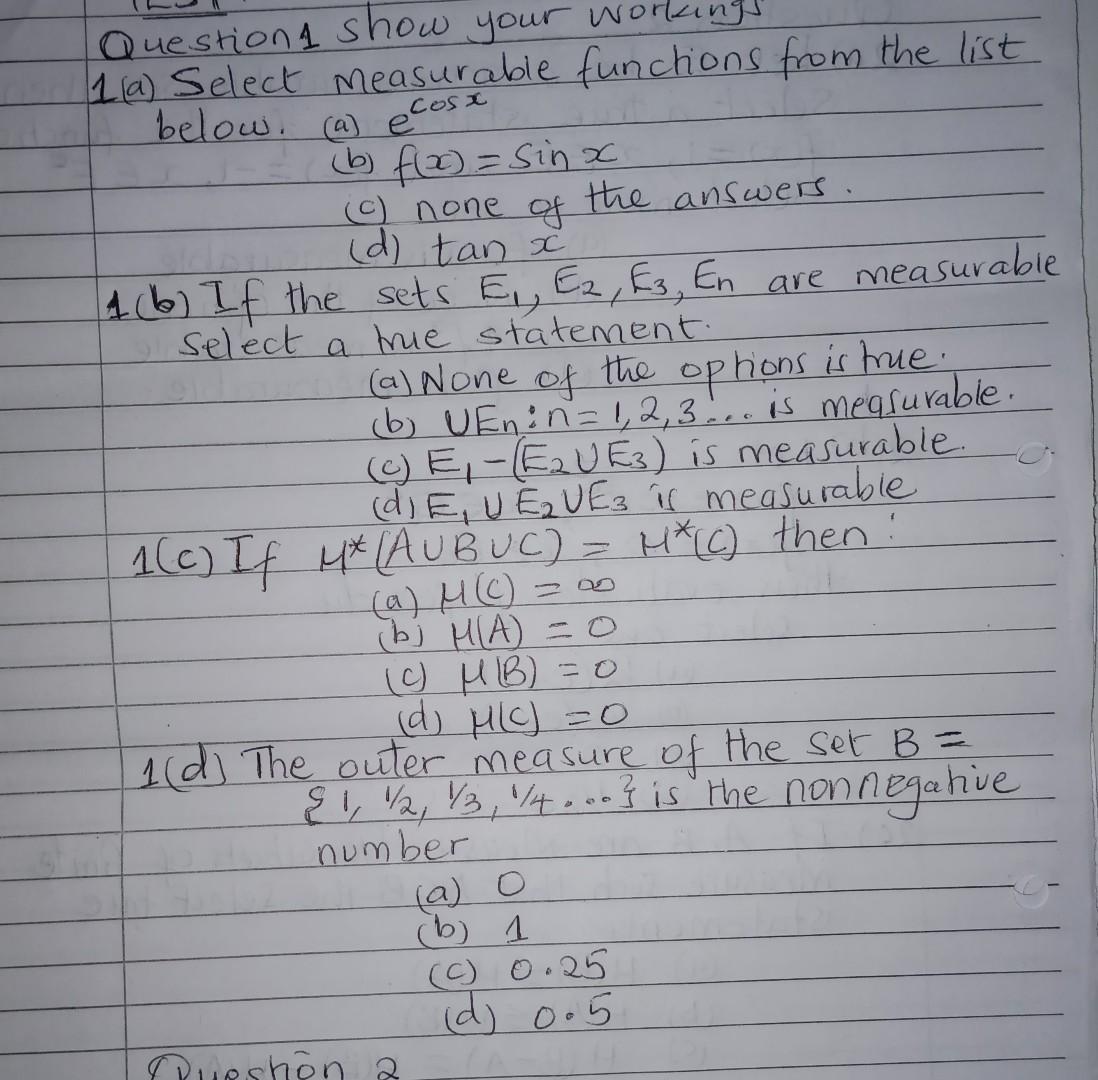 Question 1 show your workings
1(a) Select measurable functions from the list
below. (a) e^cos x
(b) f(x) = Sin x
(c) none of the answers.
(d) tan x
1(b) If the sets E₁, E₂, E₃, En are measurable
Select a true statement.
(a) None of the options is true.
(b) UEn : n = 1, 2, 3 ... is measurable.
(c) E₁ - (E₂ U E₃) is measurable.
(d) E₁ U E₂ U E₃ is measurable
1(c) If μ*(A U B U C) = μ*(C) then :
(a) μ(C) = ∞
(b) μ(A) = 0
(c) μ(B) = 0
(d) μ(C) = 0
1(d) The outer measure of the set B =
{1, 1/2, 1/3, 1/4 ...} is the nonnegative
number
(a) 0
(b) 1
(c) 0.25
(d) 0.5
Question 2